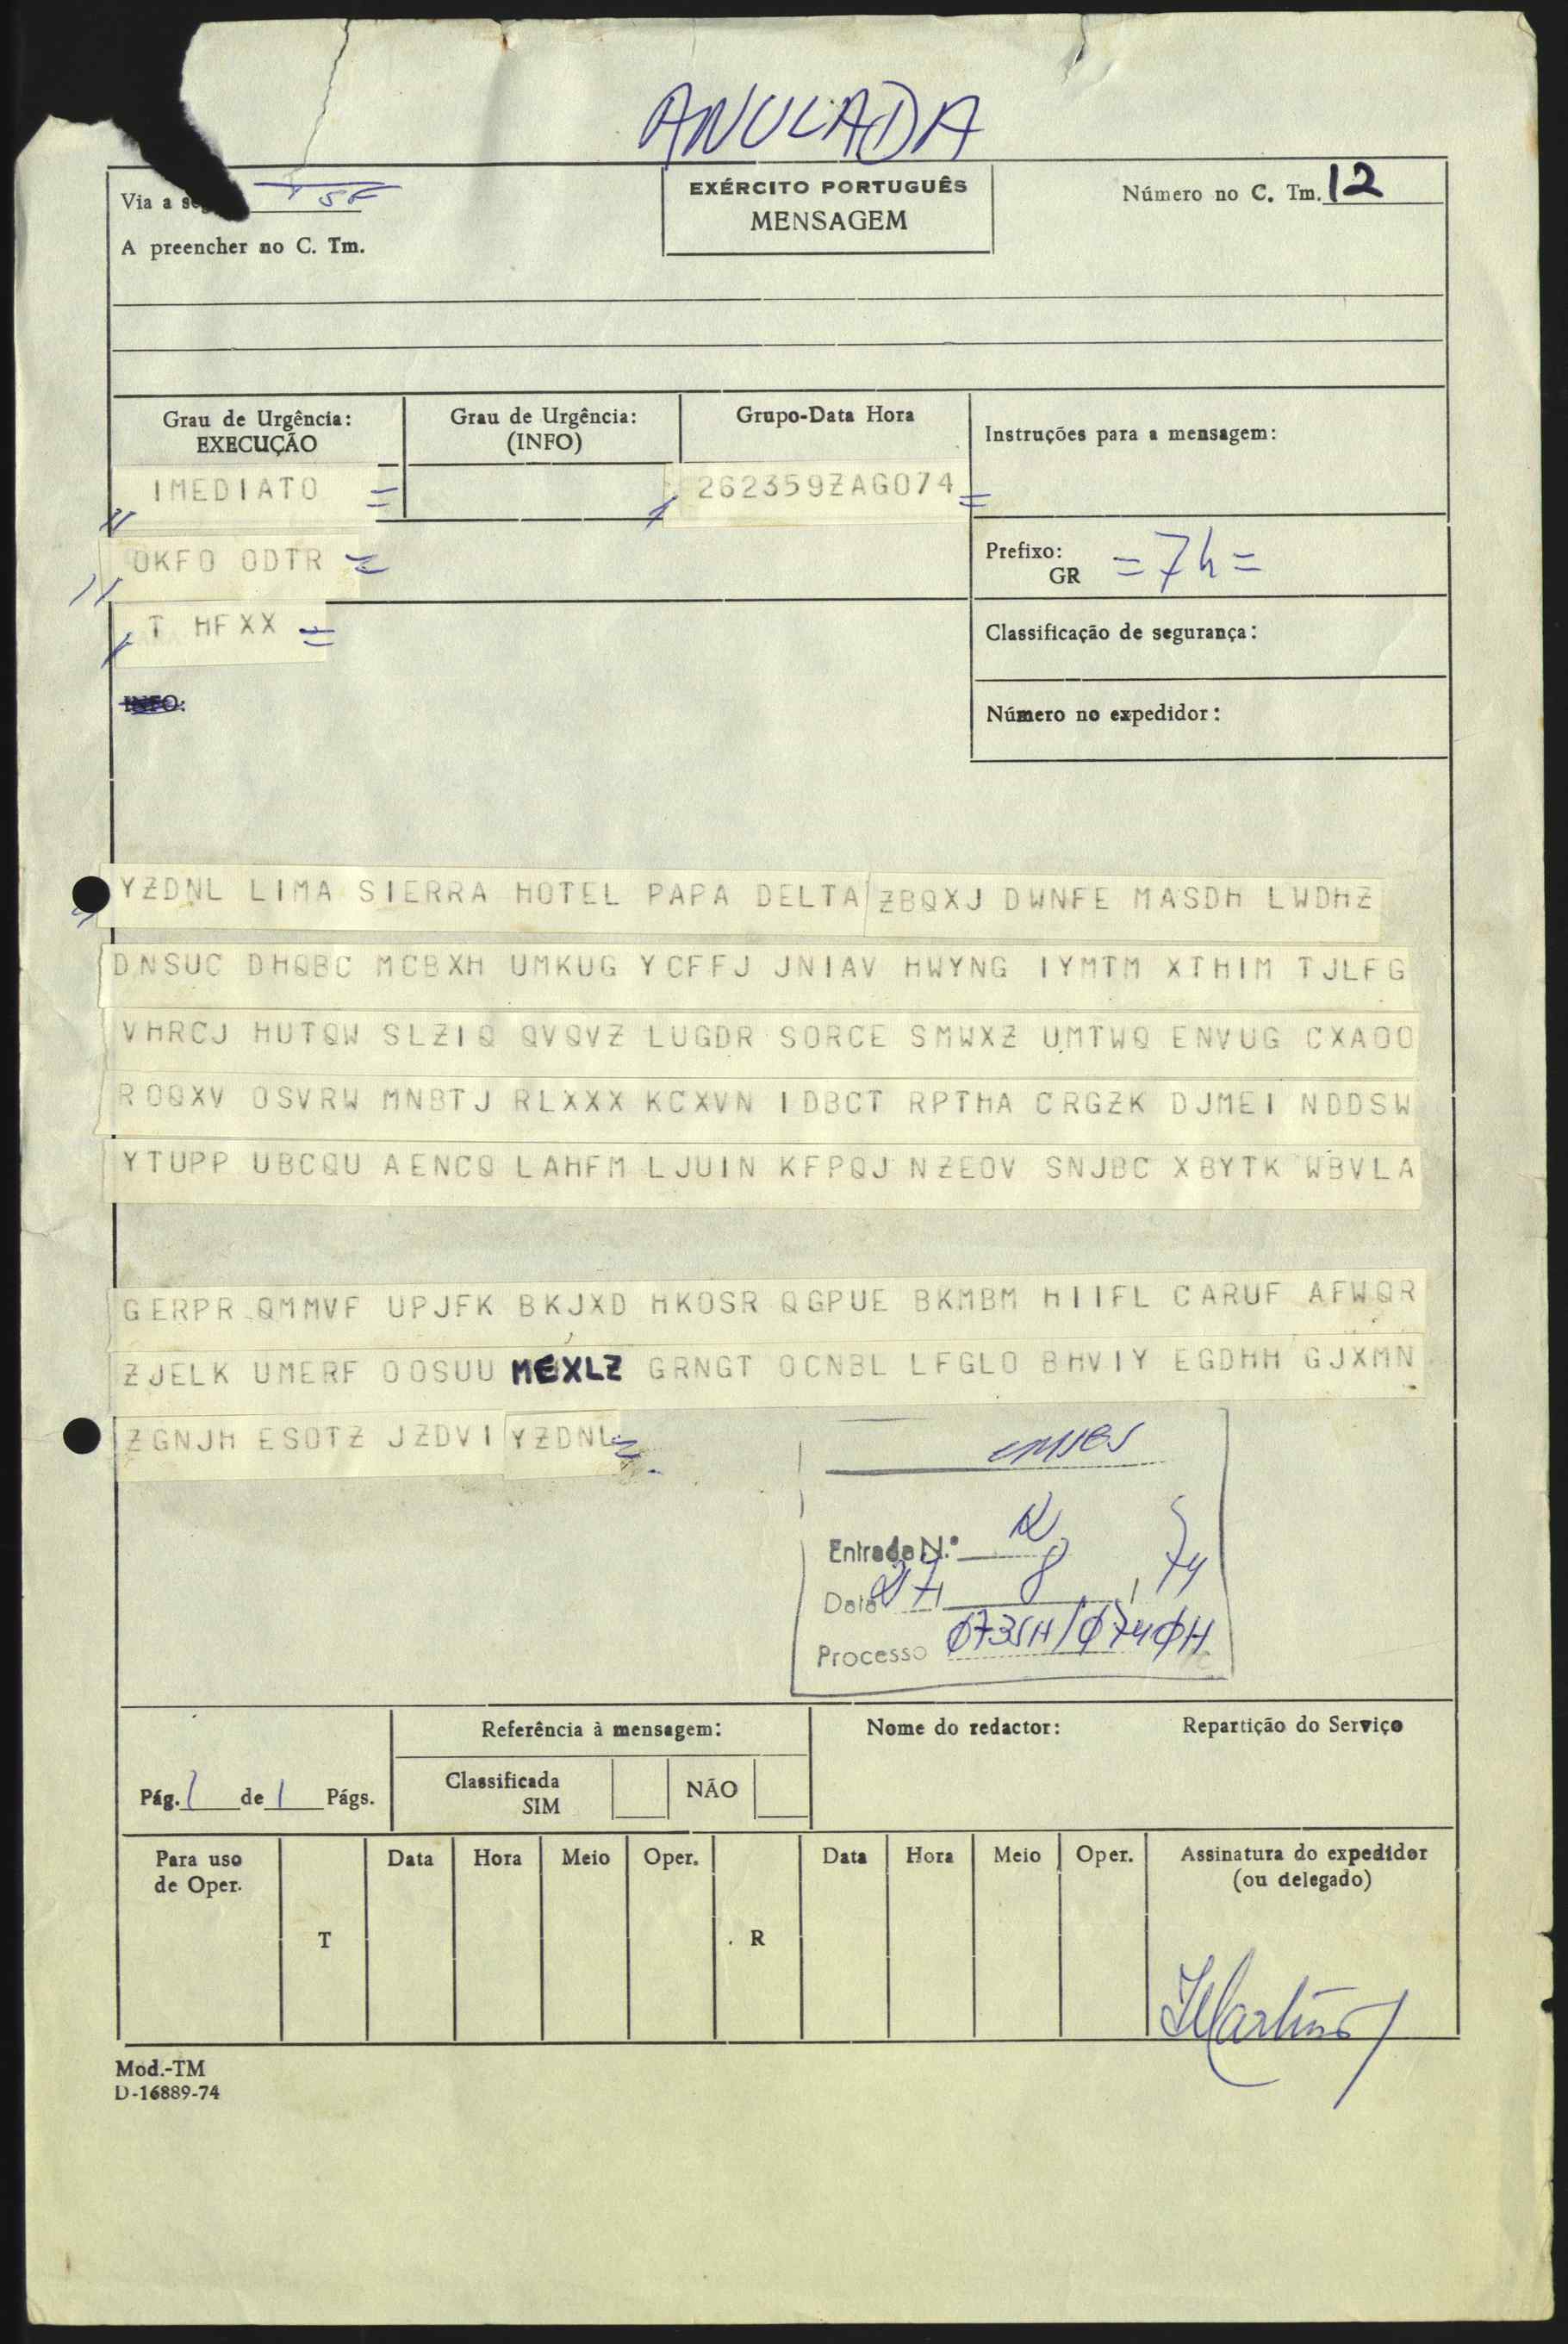 ANULADA
Via a
TSF
EXÉRCITO PORTUGUÊS
MENSAGEM
Número no C. Tm. 12
A preencher no C. Tm.
Grau de Urgência:
EXECUÇÃO
Grau de Urgência:
(INFO)
Grupo-Data Hora
Instruções para a mensagem:
IMEDIATO =
262359ZAGO74 =
OKFO ODTR =
Prefixo:
GR
=74=
T HFXX =
Classificação de segurança:
INFO:
Número no expedidor:
YZDNL LIMA SIERRA HOTEL PAPA DELTA ZBQXJ DWNFE MASDH LWDHZ
DNSUC DHQBC MCBXH UMKUG YCFFJ JNIAV HWYNG IYMTM XTHIM TJLFG
VHRCJ HUTQW SLZIQ QVQVZ LUGDR SORCE SMWXZ UMTWQ ENVUG CXAOO
ROQXV OSVRW MNBTJ RLXXX KCXVN IDBCT RPTHA CRGZK DJMEI NDDSW
YTUPP UBCQU AENCQ LAHFM LJUIN KFPQJ NZEOV SNJBC XBYTK WBVLA
GERPR QMMVF UPJFK BKJXD HKOSR QGPUE BKMBM HIIFL CARUF AFWQR
ZJELK UMERF OOSUU MEXLZ GRNGT OCNBL LFGLO BHVIY EGDHH GJXMN
ZGNJH ESOTZ JZDVI YZDNL =
Entrada N.º 12
Data 27 8 74
Processo 0735H/0740H
Pág. 1 de 1 Págs.
Referência à mensagem:
Classificada
SIM
NÃO
Nome do redactor:
Repartição do Serviço
Para uso
de Oper.
T
Data
Hora
Meio
Oper.
R
Data
Hora
Meio
Oper.
Assinatura do expedidor
(ou delegado)
Martins
Mod.-TM
D-16889-74